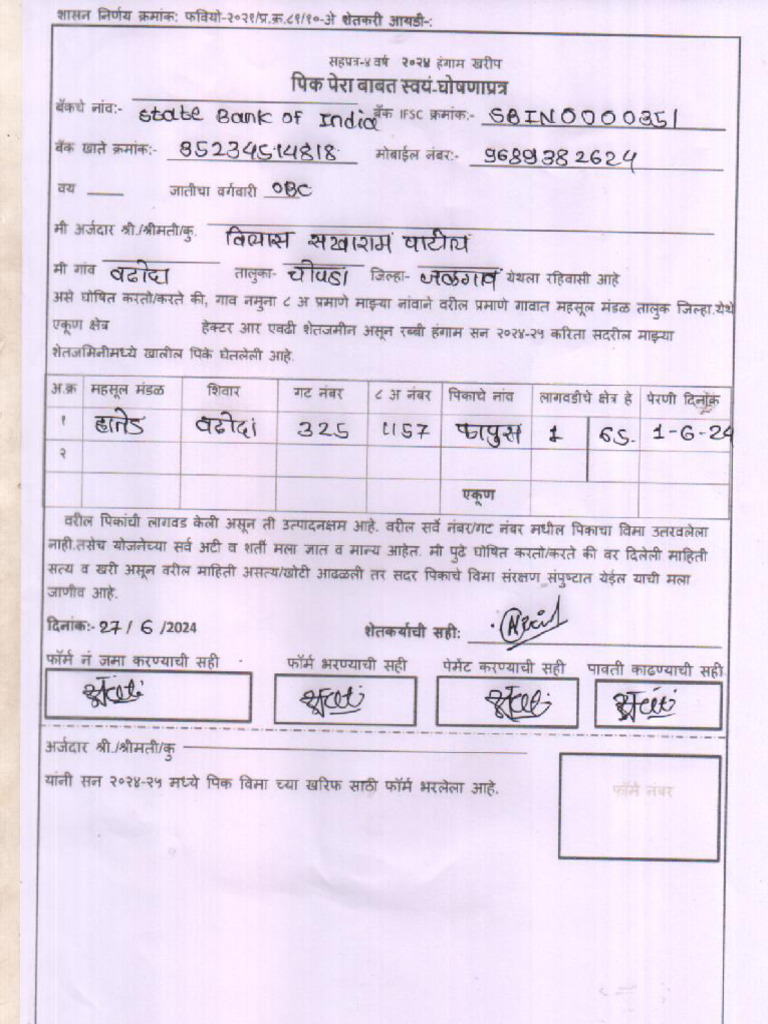 शासन निर्णय क्रमांक: फवियो-२०२१/प्र.क्र.८१/१०-अे शेतकरी आयडी-:
सहपत्र-४ वर्ष २०२४ हंगाम खरीप
पिक पेरा बाबत स्वयं-घोषणाप्रत्र
बँकचे नांव:- State Bank of India बँक IFSC क्रमांक:- SBIN0000351
बँक खाते क्रमांक:- 85234514818 मोबाईल नंबर:- 9689382624
वय जातीचा वर्गवारी OBC
मी अर्जदार श्री./श्रीमती/कु. विलास सखाराम पाटील
मी गांव वढोदा तालुका- चोपडा जिल्हा- जळगाव येथला रहिवासी आहे
असे घोषित करतो/करते की, गाव नमुना ८ अ प्रमाणे माझ्या नांवाने वरील प्रमाणे गावात महसूल मंडळ तालुक जिल्हा.येथे
एकूण क्षेत्र हेक्टर आर एवढी शेतजमीन असून रब्बी हंगाम सन २०२४-२५ करिता सदरील माझ्या
शेतजमिनीमध्ये खालील पिके घेतलेली आहे.
अ.क्र महसूल मंडळ शिवार गट नंबर ८ अ नंबर पिकाचे नांव लागवडीचे क्षेत्र हे पेरणी दिनांक
१ हातेड वढोदा 325 1157 कापुस 1 65. 1-6-24
२
एकूण
वरील पिकांची लागवड केली असून ती उत्पादनक्षम आहे. वरील सर्वे नंबर/गट नंबर मधील पिकाचा विमा उतरवलेला
नाही.तसेच योजनेच्या सर्व अटी व शर्ती मला ज्ञात व मान्य आहेत. मी पुढे घोषित करतो/करते की वर दिलेली माहिती
सत्य व खरी असून वरील माहिती असत्य/खोटी आढळली तर सदर पिकाचे विमा संरक्षण संपुष्टात येईल याची मला
जाणीव आहे.
दिनांक:- 27/6/2024 शेतकर्याची सही:
फॉर्म नं जमा करण्याची सही फॉर्म भरण्याची सही पेमेंट करण्याची सही पावती काढण्याची सही
अर्जदार श्री./श्रीमती/कु
यांनी सन २०२४-२५ मध्ये पिक विमा च्या खरिफ साठी फॉर्म भरलेला आहे.
फॉर्म नंबर